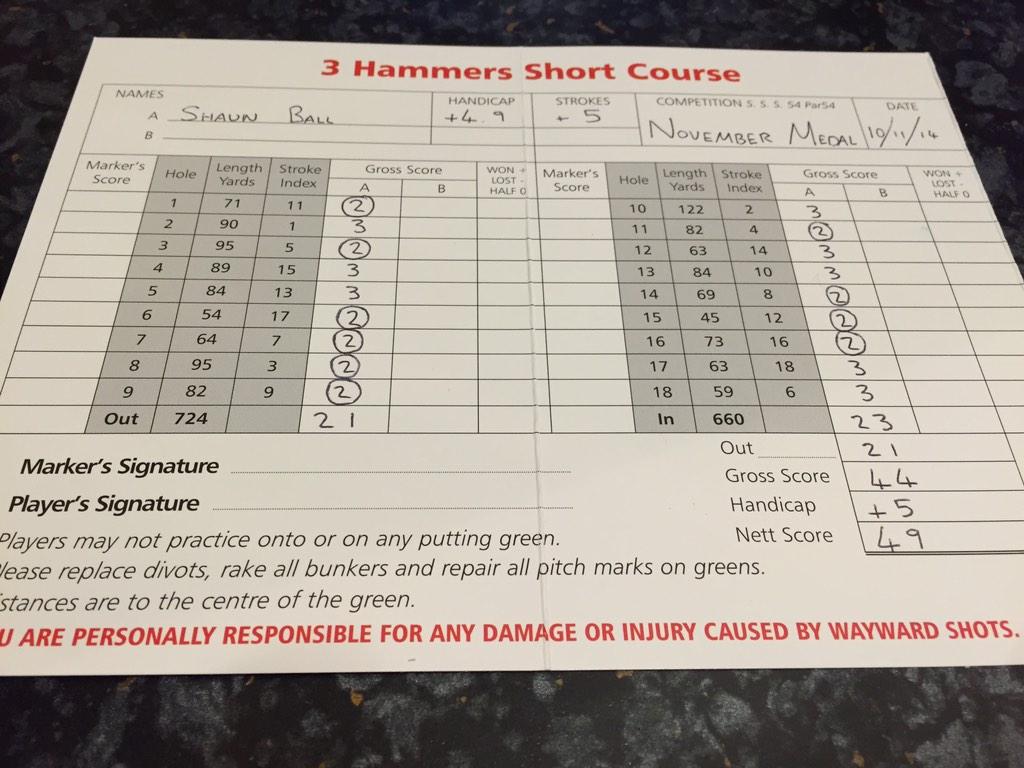 3 Hammers Short Course
NAMES HANDICAP STROKES COMPETITION S. S. S. 54 Par54 DATE
A SHAUN BALL +4.9 + 5 NOVEMBER MEDAL 10/11/14
B
Marker's Score Hole Length Yards Stroke Index Gross Score A B WON + LOST - HALF 0 Marker's Score Hole Length Yards Stroke Index Gross Score A B WON + LOST - HALF 0
1 71 11 2 10 122 2 3
2 90 1 3 11 82 4 2
3 95 5 2 12 63 14 3
4 89 15 3 13 84 10 3
5 84 13 3 14 69 8 2
6 54 17 2 15 45 12 2
7 64 7 2 16 73 16 2
8 95 3 2 17 63 18 3
9 82 9 2 18 59 6 3
Out 724 21 In 660 23
Out 21
Marker's Signature Gross Score 44
Player's Signature Handicap +5
Nett Score 49
Players may not practice onto or on any putting green.
lease replace divots, rake all bunkers and repair all pitch marks on greens.
stances are to the centre of the green.
U ARE PERSONALLY RESPONSIBLE FOR ANY DAMAGE OR INJURY CAUSED BY WAYWARD SHOTS.